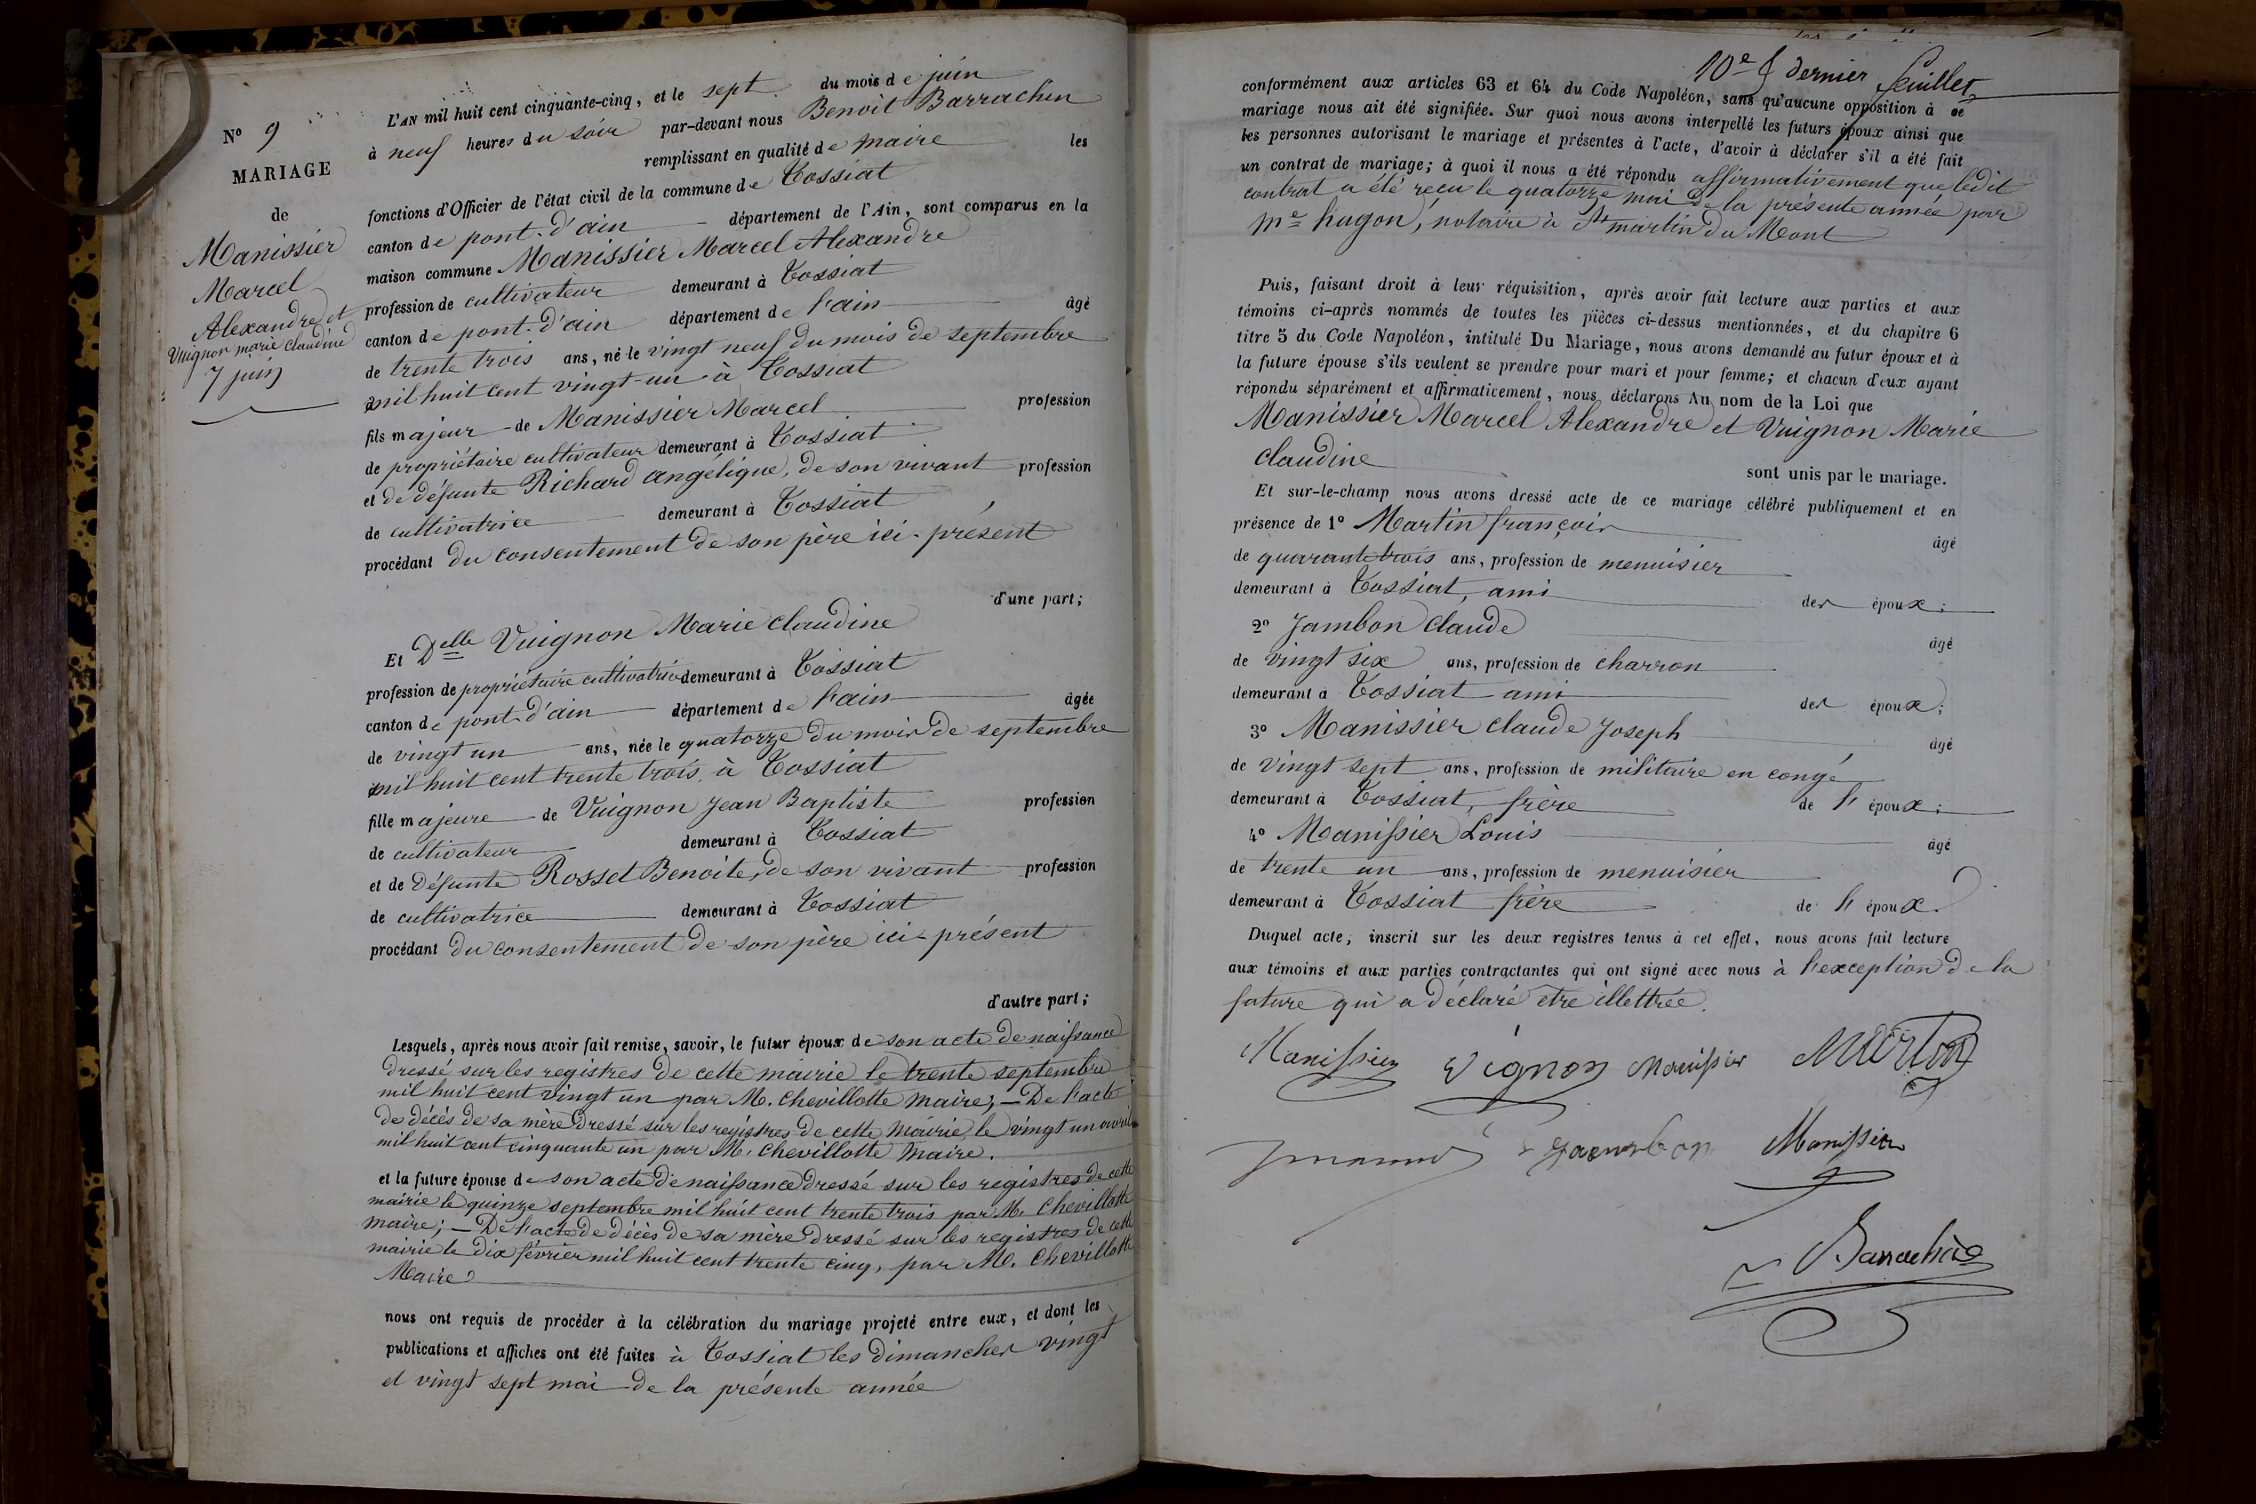 N° 9
MARIAGE
de
Manissier
Marcel
Alexandre et
Vuignon marie claudine
7 juin
L'AN mil huit cent cinquante-cinq, et le sept du mois de juin
à neuf heures du soir par-devant nous Benoit Barrachin
remplissant en qualité de maire les
fonctions d'Officier de l'état civil de la commune de Tossiat
canton de pont-d'ain département de l'Ain, sont comparus en la
maison commune Manissier Marcel Alexandre
profession de cultivateur demeurant à Tossiat
canton de pont-d'ain département de l'ain âgé
de trente trois ans, né le vingt neuf du mois de septembre
mil huit cent vingt-un à Tossiat
fils majeur de Manissier Marcel profession
de propriétaire cultivateur demeurant à Tossiat
et de défunte Richard angélique, de son vivant profession
de cultivatrice demeurant à Tossiat
procédant du consentement de son père ici-présent
d'une part;
Et Delle Vuignon Marie claudine
profession de propriétaire cultivatrice demeurant à Tossiat
canton de pont-d'ain département de l'ain âgée
de vingt un ans, née le quatorze du mois de septembre
mil huit cent trente trois, à Tossiat
fille majeure de Vuignon Jean Baptiste profession
de cultivateur demeurant à Tossiat
et de défunte Rosset Benoite, de son vivant profession
de cultivatrice demeurant à Tossiat
procédant du consentement de son père ici-présent
d'autre part;
Lesquels, après nous avoir fait remise, savoir, le futur époux de son acte de naissance
dressé sur les registres de cette mairie le trente septembre
mil huit cent vingt un par M. Chevillotte maire; — De l'acte
de décès de sa mère dressé sur les registres de cette Mairie, le vingt un avril
mil huit cent cinquante un par M. Chevillotte Maire.
et la future épouse de son acte de naissance dressé sur les registres de cette
mairie le quinze septembre mil huit cent trente trois par M. Chevillotte
maire; — De l'acte de décès de sa mère dressé sur les registres de cette
mairie le dix février mil huit cent trente cinq, par M. Chevillotte
Maire
nous ont requis de procéder à la célébration du mariage projeté entre eux, et dont les
publications et affiches ont été faites à Tossiat les dimanches vingt
et vingt sept mai de la présente année
10e & dernier feuillet
conformément aux articles 63 et 64 du Code Napoléon, sans qu'aucune opposition à ce
mariage nous ait été signifiée. Sur quoi nous avons interpellé les futurs époux ainsi que
les personnes autorisant le mariage et présentes à l'acte, d'avoir à déclarer s'il a été fait
un contrat de mariage; à quoi il nous a été répondu affirmativement que ledit
contrat a été reçu le quatorze mai de la présente année par
Me hugon, notaire à St martin du Mont
Puis, faisant droit à leur réquisition, après avoir fait lecture aux parties et aux
témoins ci-après nommés de toutes les pièces ci-dessus mentionnées, et du chapitre 6
titre 5 du Code Napoléon, intitulé Du Mariage, nous avons demandé au futur époux et à
la future épouse s'ils veulent se prendre pour mari et pour femme; et chacun d'eux ayant
répondu séparément et affirmativement, nous déclarons Au nom de la Loi que
Manissier Marcel Alexandre et Vuignon Marie
claudine sont unis par le mariage.
Et sur-le-champ nous avons dressé acte de ce mariage célébré publiquement et en
présence de 1° Martin françois âgé
de quarante trois ans, profession de menuisier
demeurant à Tossiat, ami des époux;
2° Jambon claude âgé
de vingt six ans, profession de charron
demeurant à Tossiat ami des époux;
3° Manissier claude Joseph âgé
de vingt sept ans, profession de militaire en congé
demeurant à Tossiat, frère de l'époux;
4° Manissier Louis âgé
de trente un ans, profession de menuisier
demeurant à Tossiat frère de l'époux.
Duquel acte, inscrit sur les deux registres tenus à cet effet, nous avons fait lecture
aux témoins et aux parties contractantes qui ont signé avec nous à l'exception de la
future qui a déclaré etre illettrée.
Manissier Vignon Manissier Martin
Jambon Manissier
Barrachin